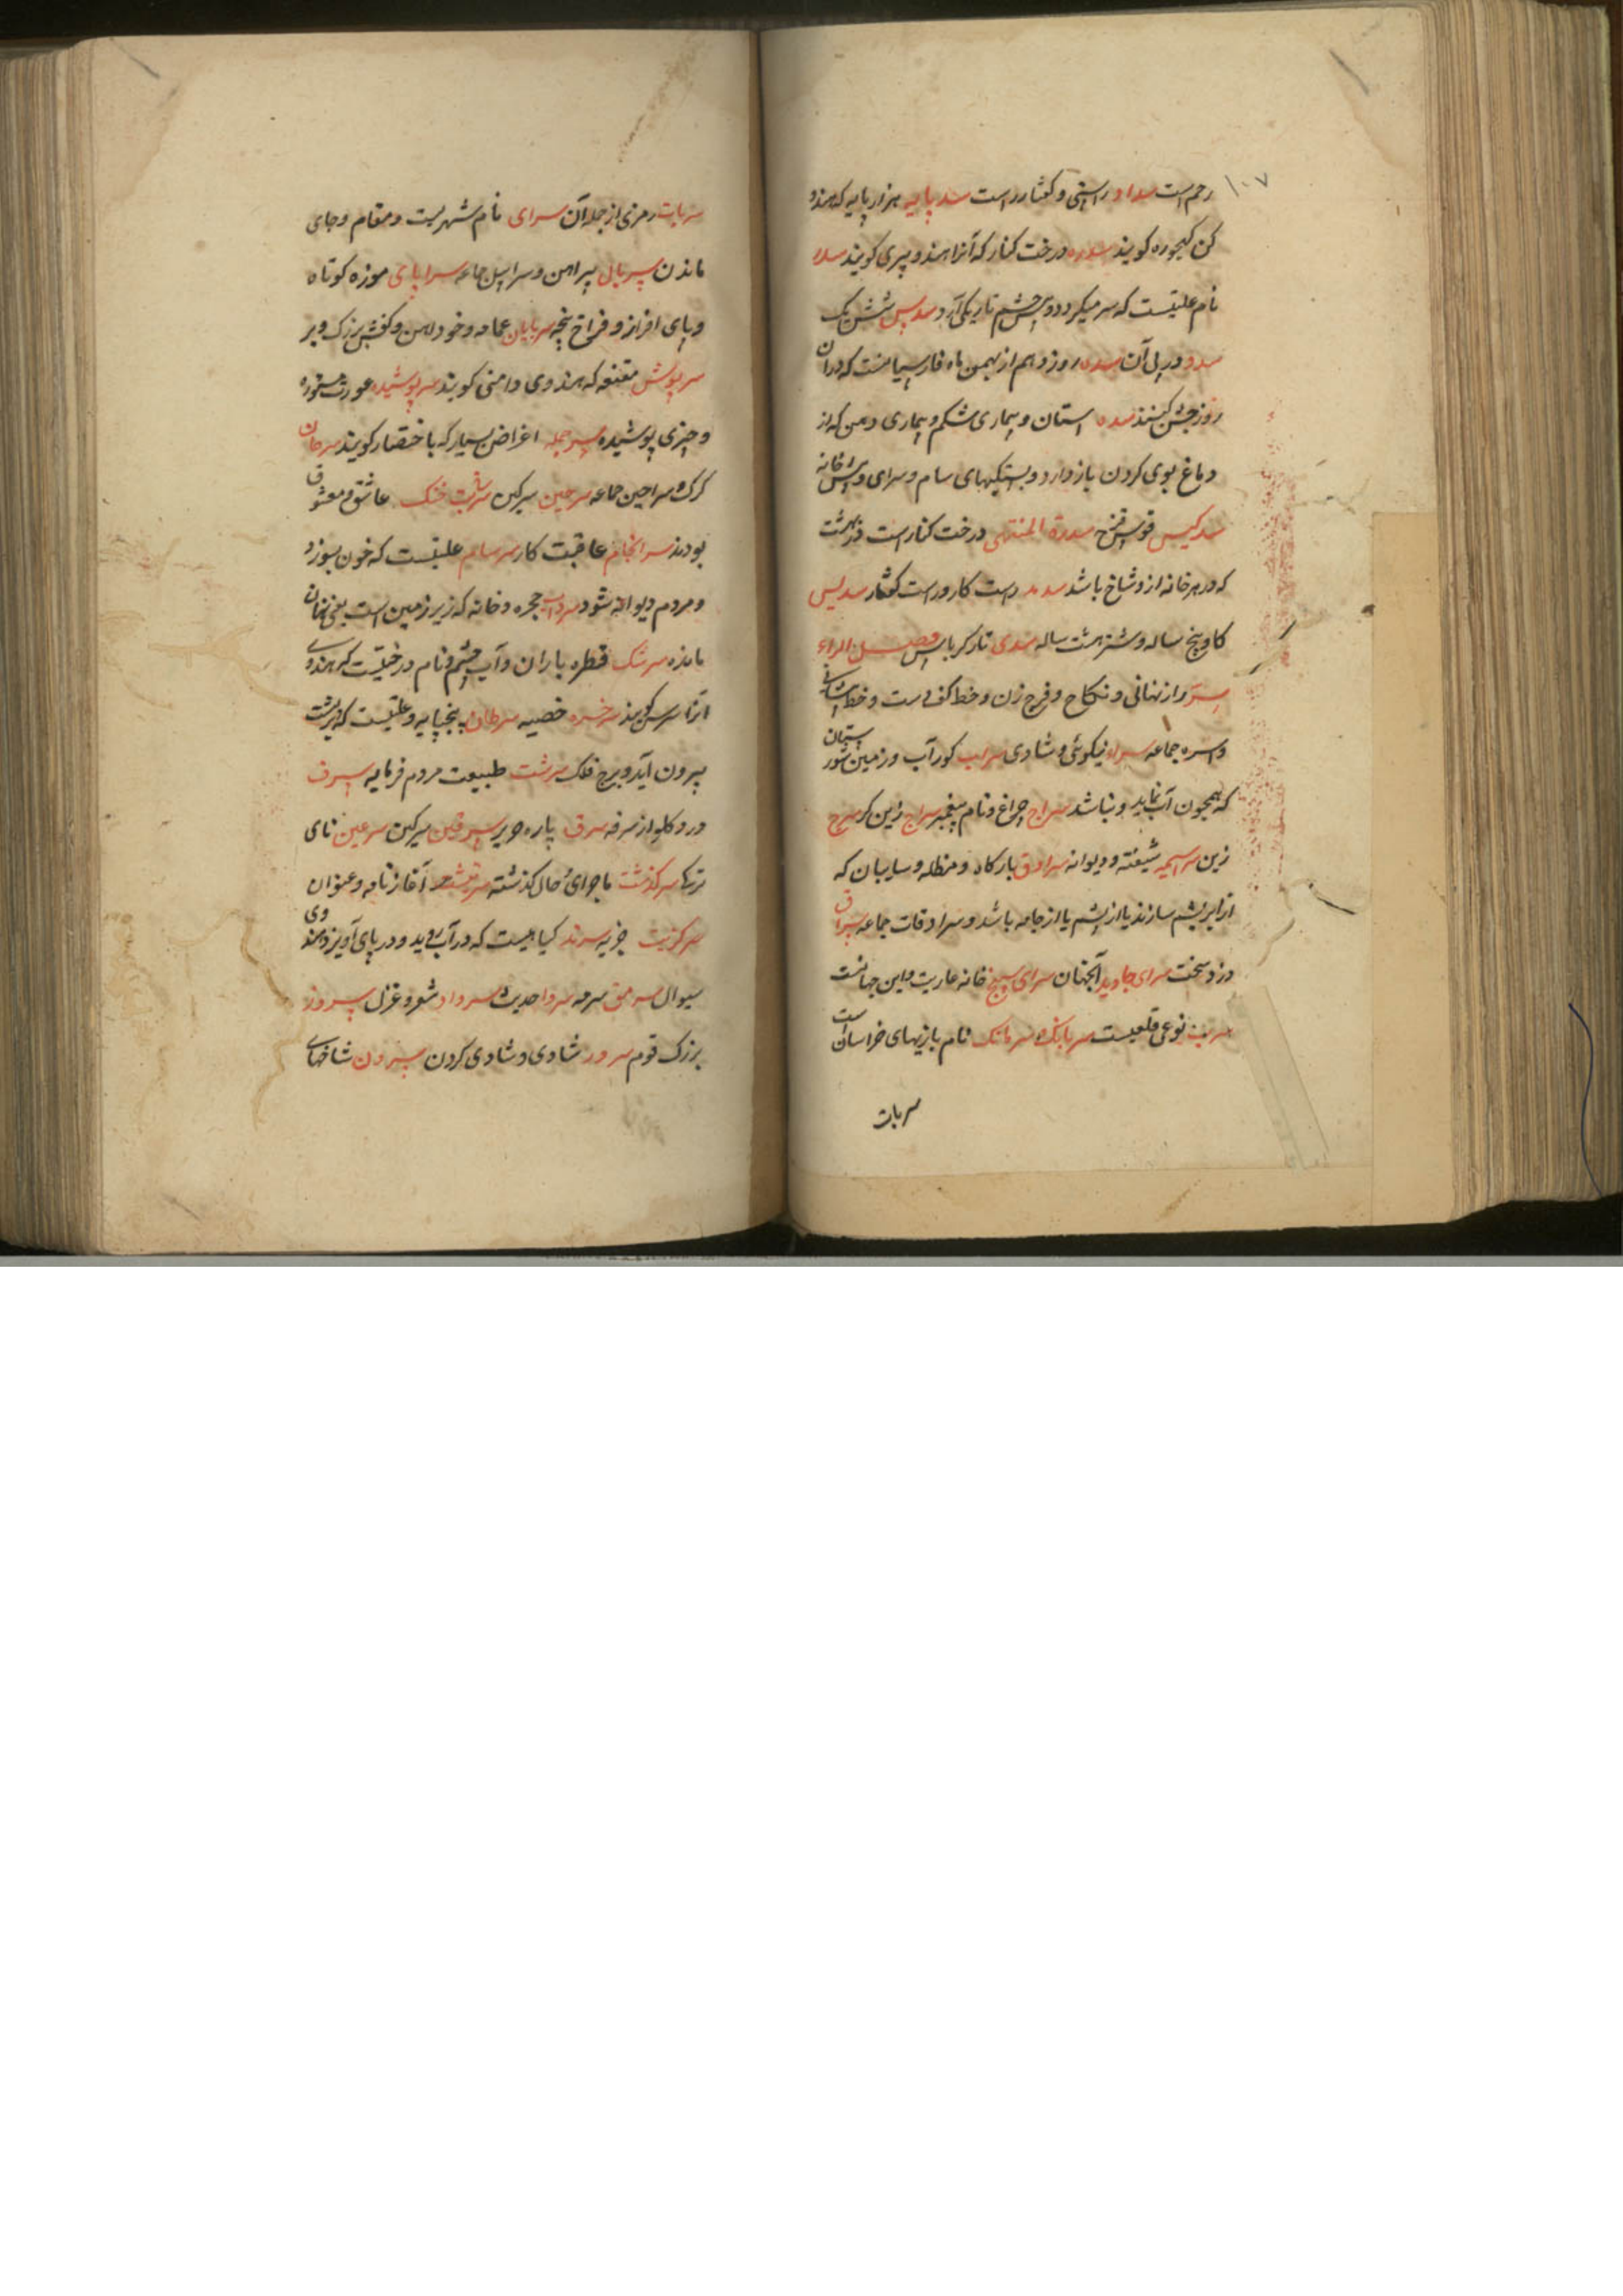 ۱۰۷
رحم است سداد راستی و گفتار راست سدپایه هزارپایه که هندو
کن کیجوره گویند سدره درخت کنار که آنرا هندو پیری گویند سدر
نام علتیست که سر میگردد و پیش چشم تاریکی آرد سدیس شش یک
سدو در پی آن سده روز دهم از بهمن ماه فارسیانست که دران
روز جشن کنند سده استان و بیماری شکم و بیماری دمن که از
دماغ بوی کردن باز دارد و بستگیهای سام و سرای و پیش خانه
سدکیس قوس قزح سدرة المنتهی درخت کنارست در بهشت
که در هر خانه ازو شاخ باشد سدید راست کار و راست گفتار سدیس
کاو پنج ساله و شتر هشت ساله سدی تار کرباس فصل الراء
سرّ راز نهانی و نکاح و فرج زن و خط کف دست و خط پیشانی
و اسره جماعه سراء نیکوئی و شادی سراب کورآب و زمین شور ستان
که همچون آب نماید و نباشد سراج چراغ و نام پیغمبر سراج زین کر سرج
زین سراسیمه شیفته و دیوانه سرادق بارگاه و مظله و سایبان که
از ابریشم سازند یا از پشم یا از جامه باشد و سرادقات جماعه سراق
دزد سخت سرای جاوید آنجهان سرای سپنج خانه عاریت و این جهانست
سرب نوعی قلعیست سربانک سرمانک نام بازیهای خراسان است
سربات
سربات رمزی از جمله آن سرای نام شهریست و مقام و جای
ماندن سربال پیراهن و سرابیل جماعه سراپای موزه کوتاه
و پای افراز و فراخ پنجه سرپایان عمامه و خود آهن و کفش بزرگ و پر
سرپوش مقنعه که هندوی دامنی گویند سرپوشیده عورت مستوره
و چیزی پوشیده سرجمله اغراض بسیار که باختصار گویند سرحان
کرک سراحین جماعه سرجین سرکین سرشت خنک عاشق و معشوق
بودند سرانجام عاقبت کار سرسام علتیست که خون بسوزد
و مردم دیوانه شود سرداب حجره و خانه که زیر زمین است یعنی نهان
مانده سرشک قطره باران و آب چشم و نام درختیست که هندوی
آنرا سرس گویند سرخسره خصیه سرطان پنجپایه و علتیست که بر پشت
بیرون آید و برج فلک سرشت طبیعت مردم فرمایه سرف
درد کلو از سرفه سرق پاره حریر سرقین سرکین سرغین نای
ترکی سرکذشت ماجرای حال کذشته سرنبشت آغاز نامه و عنوان
سرکزیت جزیه سرند کیاهیست که در آب روید و در پای آویزد هندوی
سیوال سرمق سرمه سروا حدیث سرواد شعر و غزل سروز
بزرک قوم سرور شادی و شادی کردن سرون شاخهای